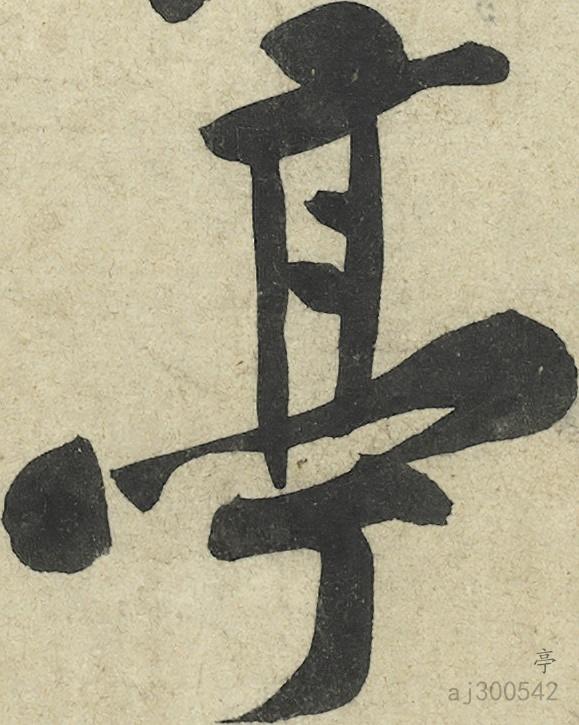 亭
亭
aj300542